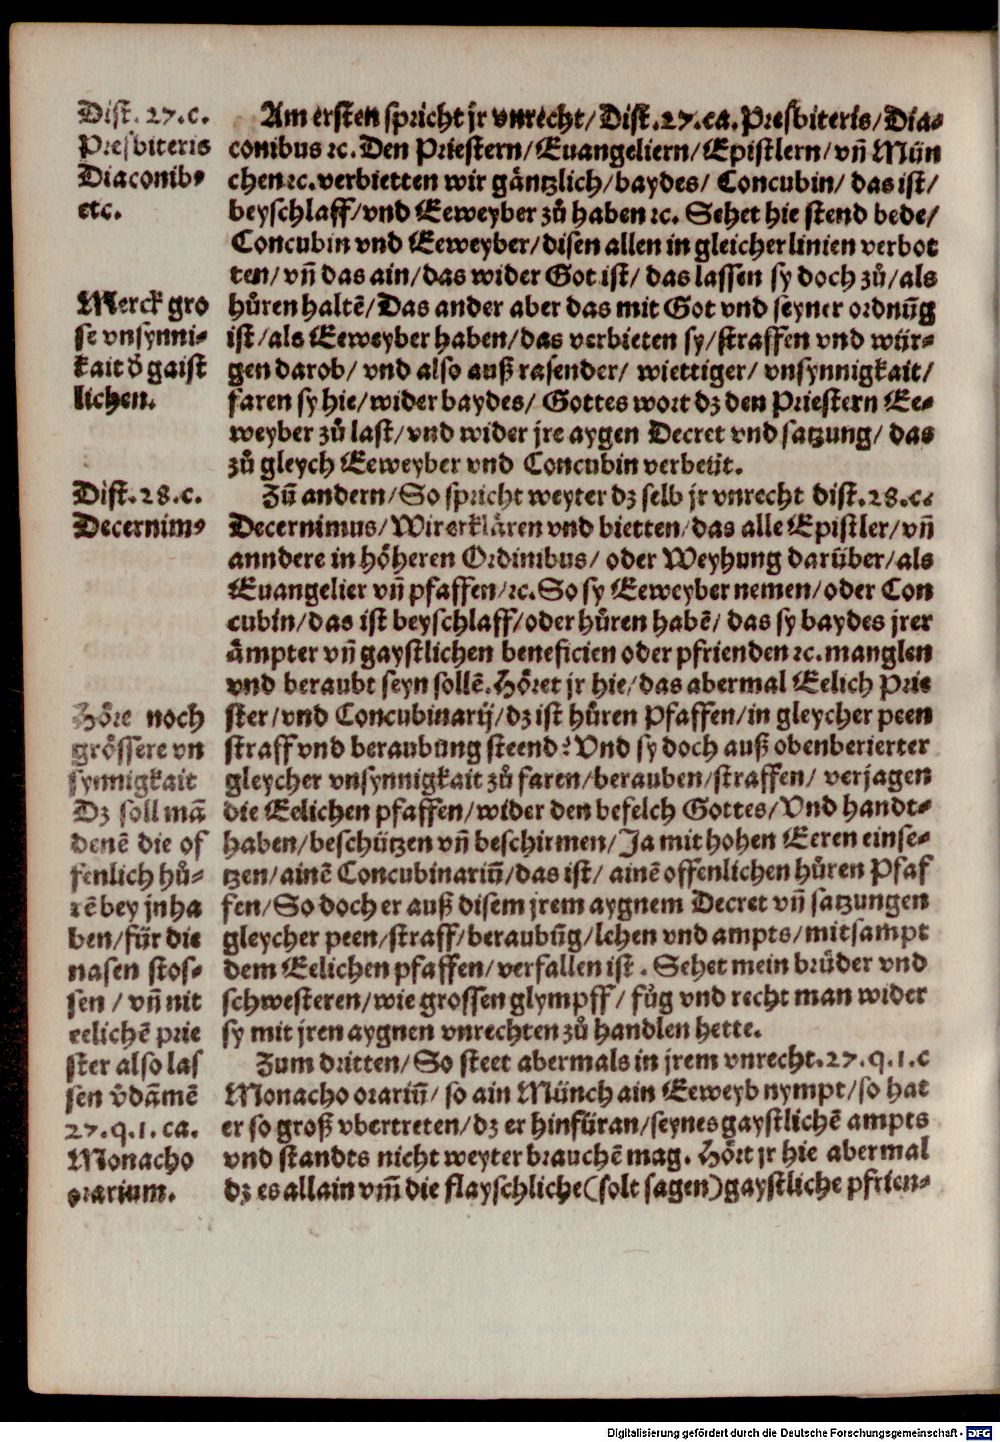 Dist. 27. c.
Presbiteris
Diaconibꝰ
etc.
Merck gro
se vnsynni-
kait d̕ gaist
lichen.
Dist. 28. c.
Decernimꝰ
Höre noch
grössere vn
synnigkait
Dz soll mā
denē die of
fenlich hů-
rē bey jn ha
ben/für die
nasen stos-
sen / vn̄ nit
eelichē prie
ster also las
sen v̕dām̄ē
27. q. 1. ca.
Monacho
orarium.
Am ersten spricht jr vnrecht/ Dist. 27. ca. Presbiteris/ Dia-
conibus ꝛc. Den Priestern/ Euangeliern/ Epistlern/ vn̄ Mün
chen ꝛc. verbietten wir gäntzlich/ baydes/ Concubin/ das ist/
beyschlaff/ vnd Eeweyber zů haben ꝛc. Sehet hie stend bede/
Concubin vnd Eeweyber/ disen allen in gleicher linien verbot
ten/ vn̄ das ain/ das wider Got ist/ das lassen sy doch zů/ als
hůren haltē/ Das ander aber das mit Got vnd seyner ordnūg
ist/ als Eeweyber haben/ das verbieten sy/ straffen vnd wür-
gen darob/ vnd also auß rasender/ wiettiger/ vnsynnigkait/
faren sy hie/ wider baydes/ Gottes wort dz den Priestern Ee-
weyber zů last/ vnd wider jre aygen Decret vnd satzung/ das
zů gleych Eeweyber vnd Concubin verbeüt.
Zū andern/ So spricht weyter dz selb jr vnrecht dist. 28. c.
Decernimus/ Wir erklären vnd bietten/ das alle Epistler/ vn̄
anndere in höheren Ordinibus/ oder Weyhung darüber/ als
Euangelier vn̄ pfaffen/ ꝛc. So sy Eeweyber nemen/ oder Con
cubin/ das ist beyschlaff/ oder hůren habē/ das sy baydes jrer
ämpter vn̄ gaystlichen beneficien oder pfrienden ꝛc. manglen
vnd beraubt seyn sollē. Höret jr hie/ das abermal Eelich Prie
ster/ vnd Concubinarij/ dz ist hůren Pfaffen/ in gleycher peen
straff vnd beraubung steend? Vnd sy doch auß obenberierter
gleycher vnsynnigkait zů faren/ berauben/ straffen/ verjagen
die Eelichen pfaffen/ wider den befelch Gottes/ Vnd handt-
haben/ beschützen vn̄ beschirmen/ Ja mit hohen Eeren einse-
tzen/ ainē Concubinariū/ das ist/ ainē offenlichen hůren Pfaf
fen/ So doch er auß disem jrem aygnem Decret vn̄ satzungen
gleycher peen/ straff/ beraubūg/ lehen vnd ampts/ mitsampt
dem Eelichen pfaffen/ verfallen ist. Sehet mein brüder vnd
schwesteren/ wie grossen glympff/ fůg vnd recht man wider
sy mit jren aygnen vnrechten zů handlen hette.
Zum dritten/ So steet abermals in jrem vnrecht. 27. q. 1. c
Monacho orariū/ so ain Münch ain Eeweyb nympt/ so hat
er so groß vbertreten/ dz er hinfüran/ seynes gaystlichē ampts
vnd standts nicht weyter brauchē mag. Hört jr hie abermal
dz es allain vm̄ die flayschliche (solt sagen) gaystliche pfrien-
Digitalisierung gefördert durch die Deutsche Forschungsgemeinschaft - DFG